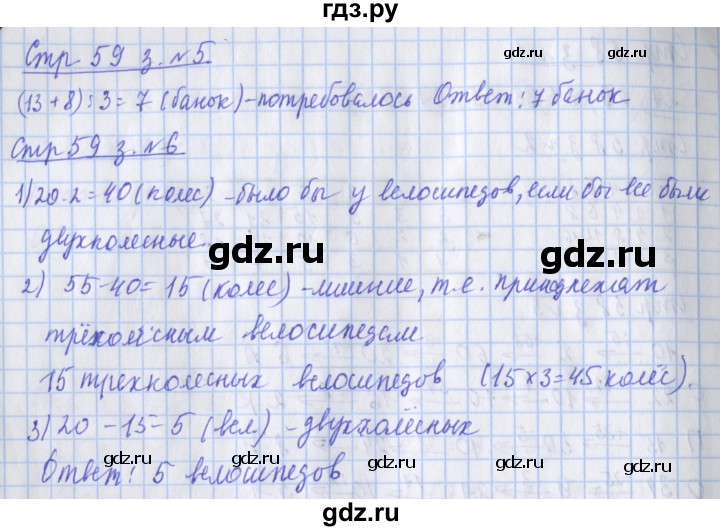 гдз.ру
Стр 59 з. №5.
(13+8):3=7 (банок)-потребовалось Ответ: 7 банок
Стр 59 з. №6
1) 20·2=40 (колес) -было бы у велосипедов, если бы все были
двухколесные
2) 55-40=15 (колес) -лишние, т.е. принадлежат
трёхколёсным велосипедам
15 трехколесных велосипедов (15×3=45 колёс).
3) 20-15=5 (вел.) -двухколёсных
Ответ: 5 велосипедов
gdz.ru
gdz.ru
gdz.ru
gdz.ru
gdz.ru
gdz.ru
gdz.ru
gdz.ru
gdz.ru
gdz.ru
gdz.ru
gdz.ru